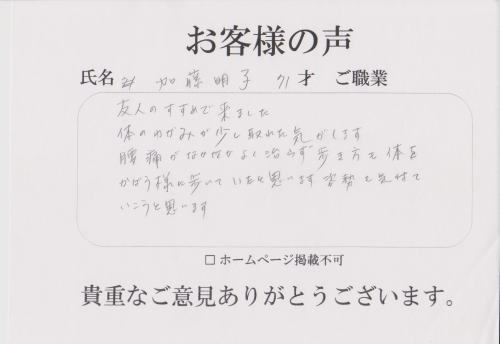 お客様の声
氏名 加藤明子 71才 ご職業
友人のすすめで来ました
体のゆがみが少し取れた気がします
腰痛がなかなかよく治らず歩き方も体を
かばう様に歩いていたと思います 姿勢も気をせて
いこうと思います
□ホームページ掲載不可
貴重なご意見ありがとうございます。